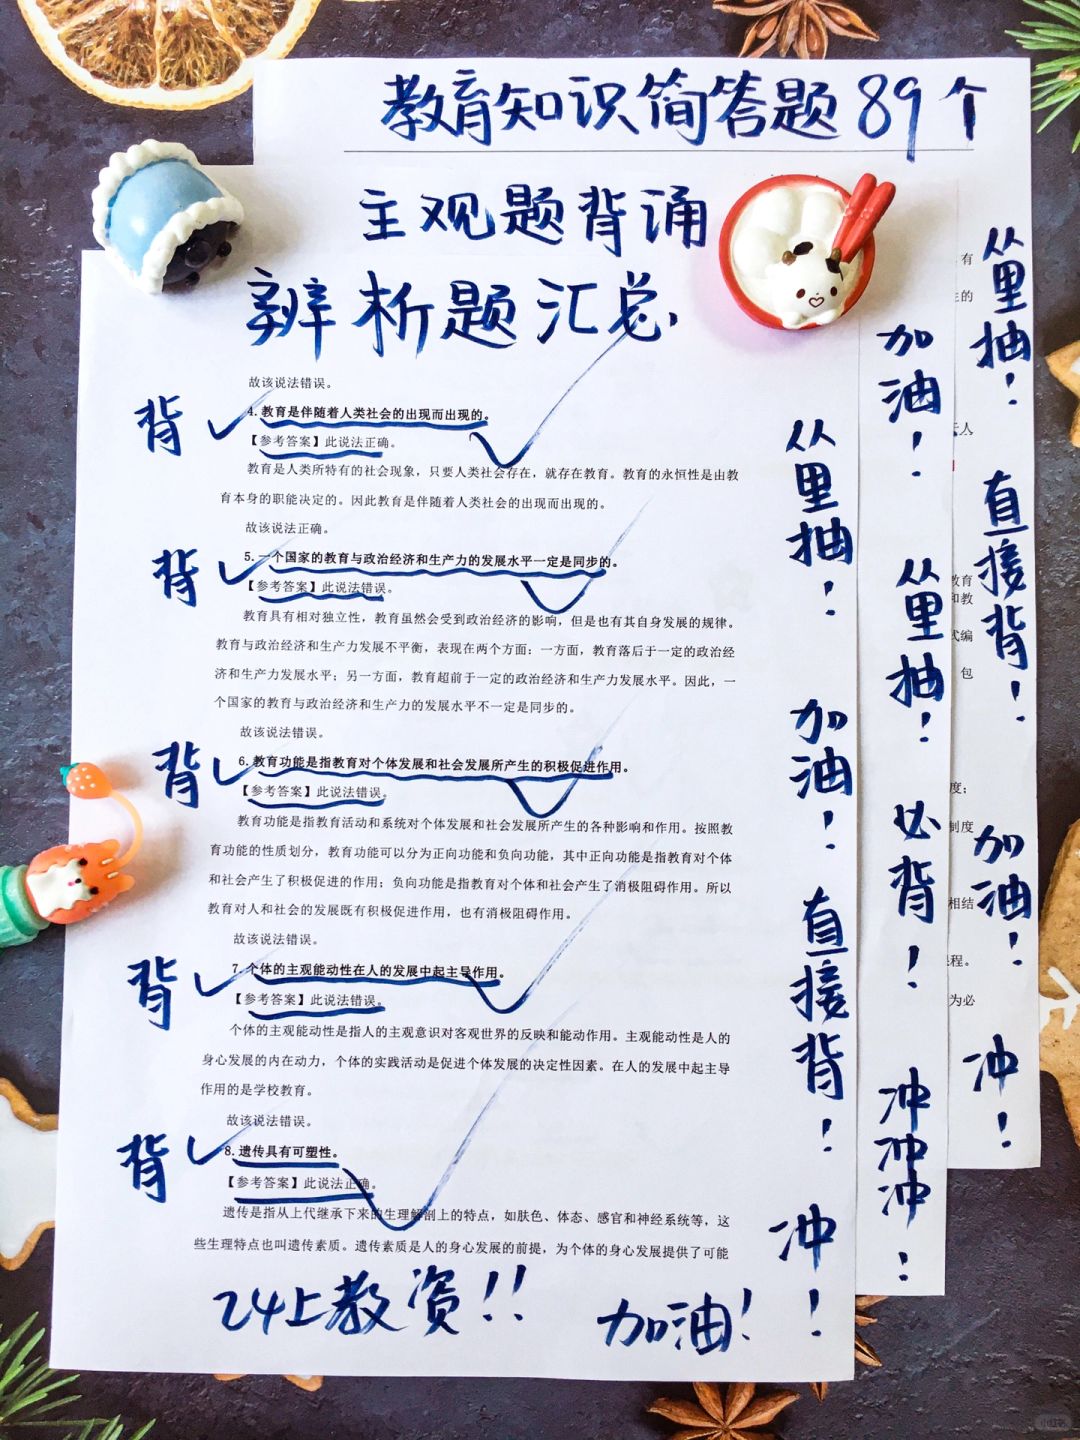 教育知识简答题89个
主观题背诵
辨析题汇总
故该说法错误。
背
4.教育是伴随着人类社会的出现而出现的。
【参考答案】此说法正确。
教育是人类所特有的社会现象，只要人类社会存在，就存在教育。教育的永恒性是由教
育本身的职能决定的。因此教育是伴随着人类社会的出现而出现的。
故该说法正确。
背
5.一个国家的教育与政治经济和生产力的发展水平一定是同步的。
【参考答案】此说法错误。
教育具有相对独立性，教育虽然会受到政治经济的影响，但是也有其自身发展的规律。
教育与政治经济和生产力发展不平衡，表现在两个方面：一方面，教育落后于一定的政治经
济和生产力发展水平；另一方面，教育超前于一定的政治经济和生产力发展水平。因此，一
个国家的教育与政治经济和生产力的发展水平不一定是同步的。
故该说法错误。
背
6.教育功能是指教育对个体发展和社会发展所产生的积极促进作用。
【参考答案】此说法错误。
教育功能是指教育活动和系统对个体发展和社会发展所产生的各种影响和作用。按照教
育功能的性质划分，教育功能可以分为正向功能和负向功能，其中正向功能是指教育对个体
和社会产生了积极促进的作用；负向功能是指教育对个体和社会产生了消极阻碍作用。所以
教育对人和社会的发展既有积极促进作用，也有消极阻碍作用。
故该说法错误。
背
7.个体的主观能动性在人的发展中起主导作用。
【参考答案】此说法错误。
个体的主观能动性是指人的主观意识对客观世界的反映和能动作用。主观能动性是人的
身心发展的内在动力，个体的实践活动是促进个体发展的决定性因素。在人的发展中起主导
作用的是学校教育。
故该说法错误。
背
8.遗传具有可塑性。
【参考答案】此说法正确。
遗传是指从上代继承下来的生理解剖上的特点，如肤色、体态、感官和神经系统等，这
些生理特点也叫遗传素质。遗传素质是人的身心发展的前提，为个体的身心发展提供了可能
24上教资!! 加油!
从里抽!
加油!
直接背!
冲!
加油!
从里抽!
必背!
冲冲冲!
从里抽!
直接背!
加油!
冲!
有
的
人
教育
和教
式编
包
度；
制度
相结
程。
为必
小红书